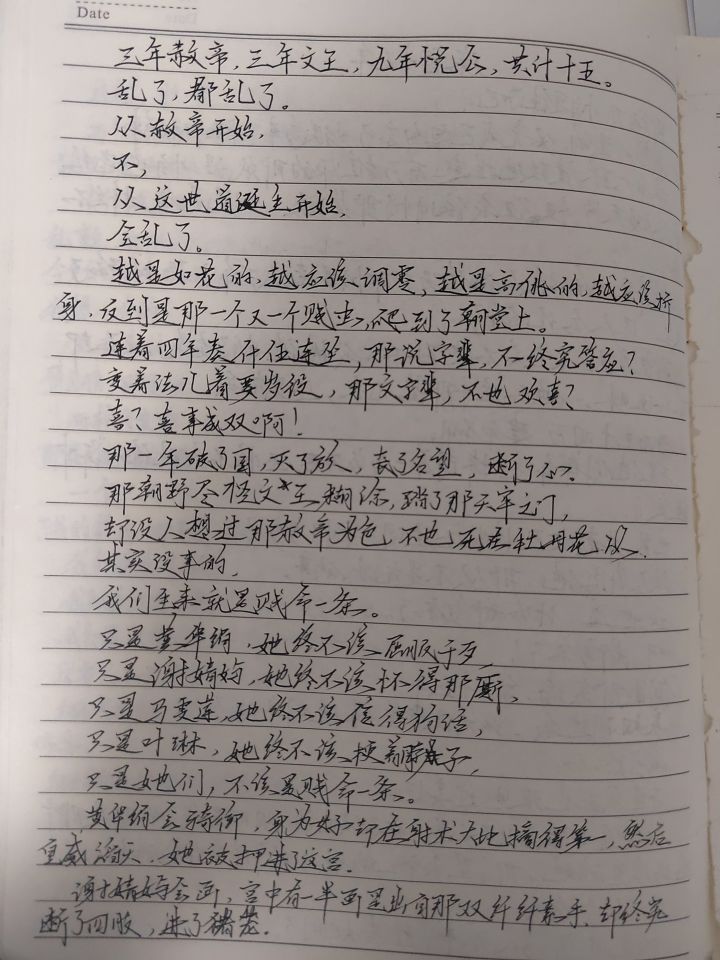 Date
三年赦帝，三年文王，九年悦公，共计十五。
乱了，都乱了。
从赦帝开始，
不，
从这世道诞生开始，
全乱了。
越是如花的，越应该凋零，越是高洁的，越应该折
身，反到是那一个又一个贱虫，爬到了朝堂上。
连着四年奏什伍连坐，那说字辈，不终究答应？
变着法儿着要岁役，那文字辈，不也欢喜？
喜？喜事成双啊！
那一年破了国，灭了族，丧了名望，断了心。
那朝野尽怪文王糊涂，踏了那天牢之门，
却没人想过那赦帝为色，不也死在牡丹花下
其实没事的，
我们生来就是贱命一条。
只是黄华绢，她终不该屈服于歹，
只是谢婧妈，她终不该怀得那
只是马雯莲，她终不该信得狗话，
只是叶琳，她终不该梗着脖子，
只是她们，不该是贱命一条。
黄华绢会骑御，身为女子却在射术大比摘得第一，然后
皇威滔天，她被押进了这宫。
谢婧妈会画，宫中有一半画是出自那双纤纤素手，却终究
断了四肢，进了猪笼。